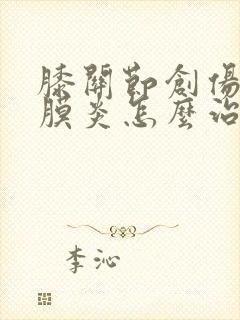 膝關節創傷
膜炎怎麼治
李沁